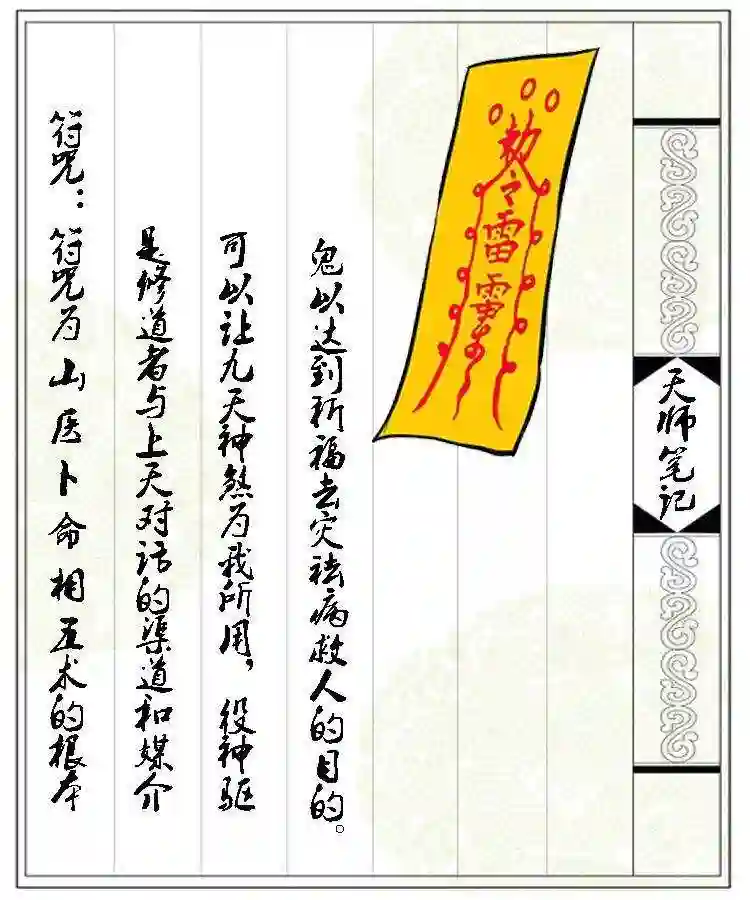 符咒：符咒为山医卜命相五术的根本
是修道者与上天对话的渠道和媒介
可以让九天神煞为我所用，役神驱
鬼以达到祈福去灾祛病救人的目的。
敕令雷
天师笔记